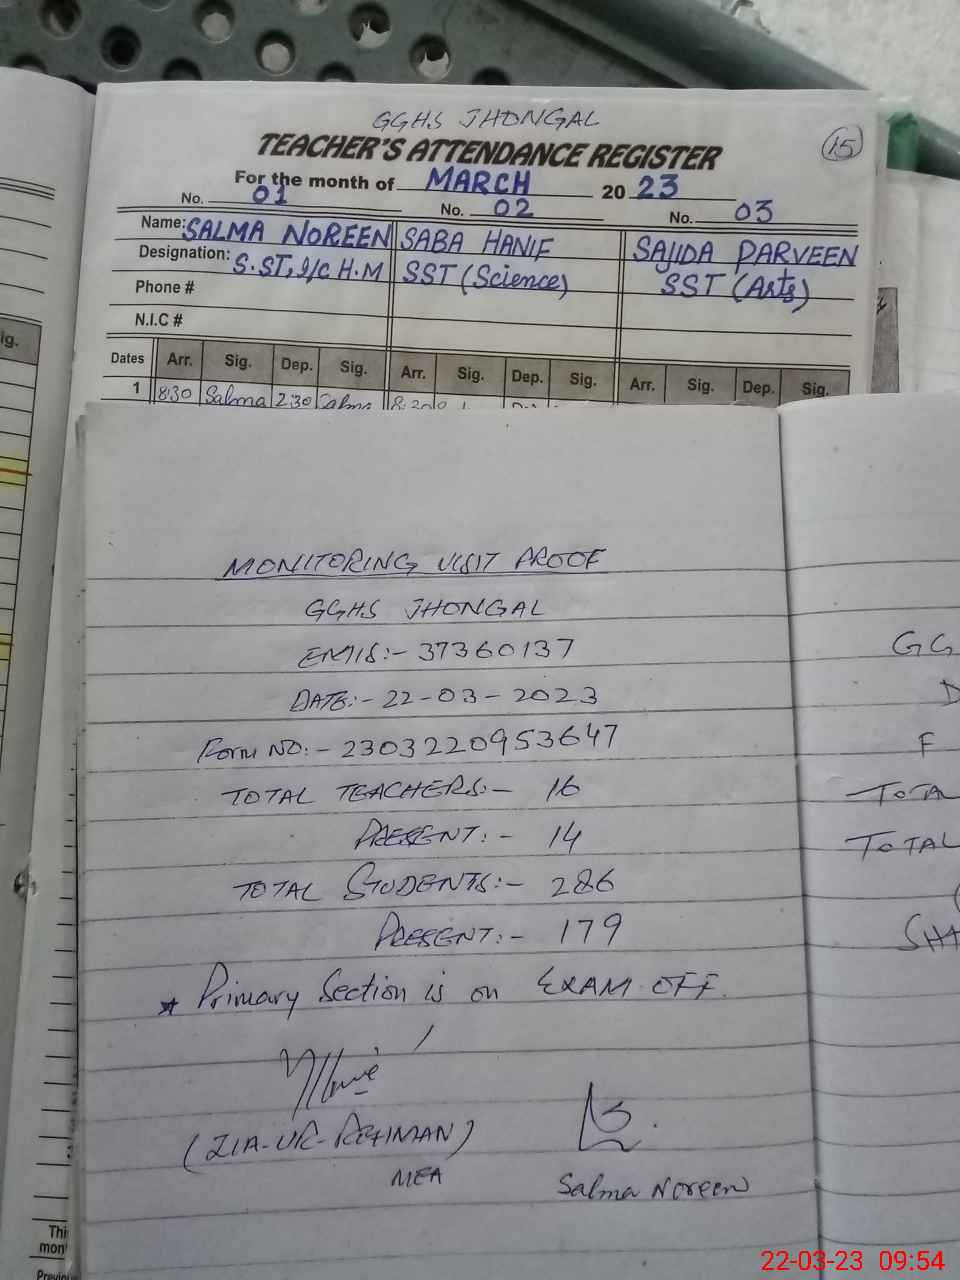 GGHS JHONGAL
TEACHER'S ATTENDANCE REGISTER
15
For the month of MARCH 2023
No. 01 No. 02 No. 03
Name: SALMA NOREEN SABA HANIF SAJIDA PARVEEN
Designation: S.ST, I/C H.M SST (Science) SST (Arts)
Phone #
N.I.C #
Dates Arr. Sig. Dep. Sig. Arr. Sig. Dep. Sig. Arr. Sig. Dep. Sig.
1 8:30 Salma 2:30 Salma
ig.
MONITORING VISIT PROOF
GGHS JHONGAL
EMIS:- 37360137
DATE:- 22-03-2023
Form NO:- 2303220953647
TOTAL TEACHERS:- 16
PRESENT:- 14
TOTAL STUDENTS:- 286
PRESENT:- 179
* Primary Section is on EXAM OFF.
(ZIA-UR-REHMAN)
MEA
Salma Noreen
GG
D
F
TOTA
TOTAL
SHA
Thi
mon
Previou
22-03-23 09:54